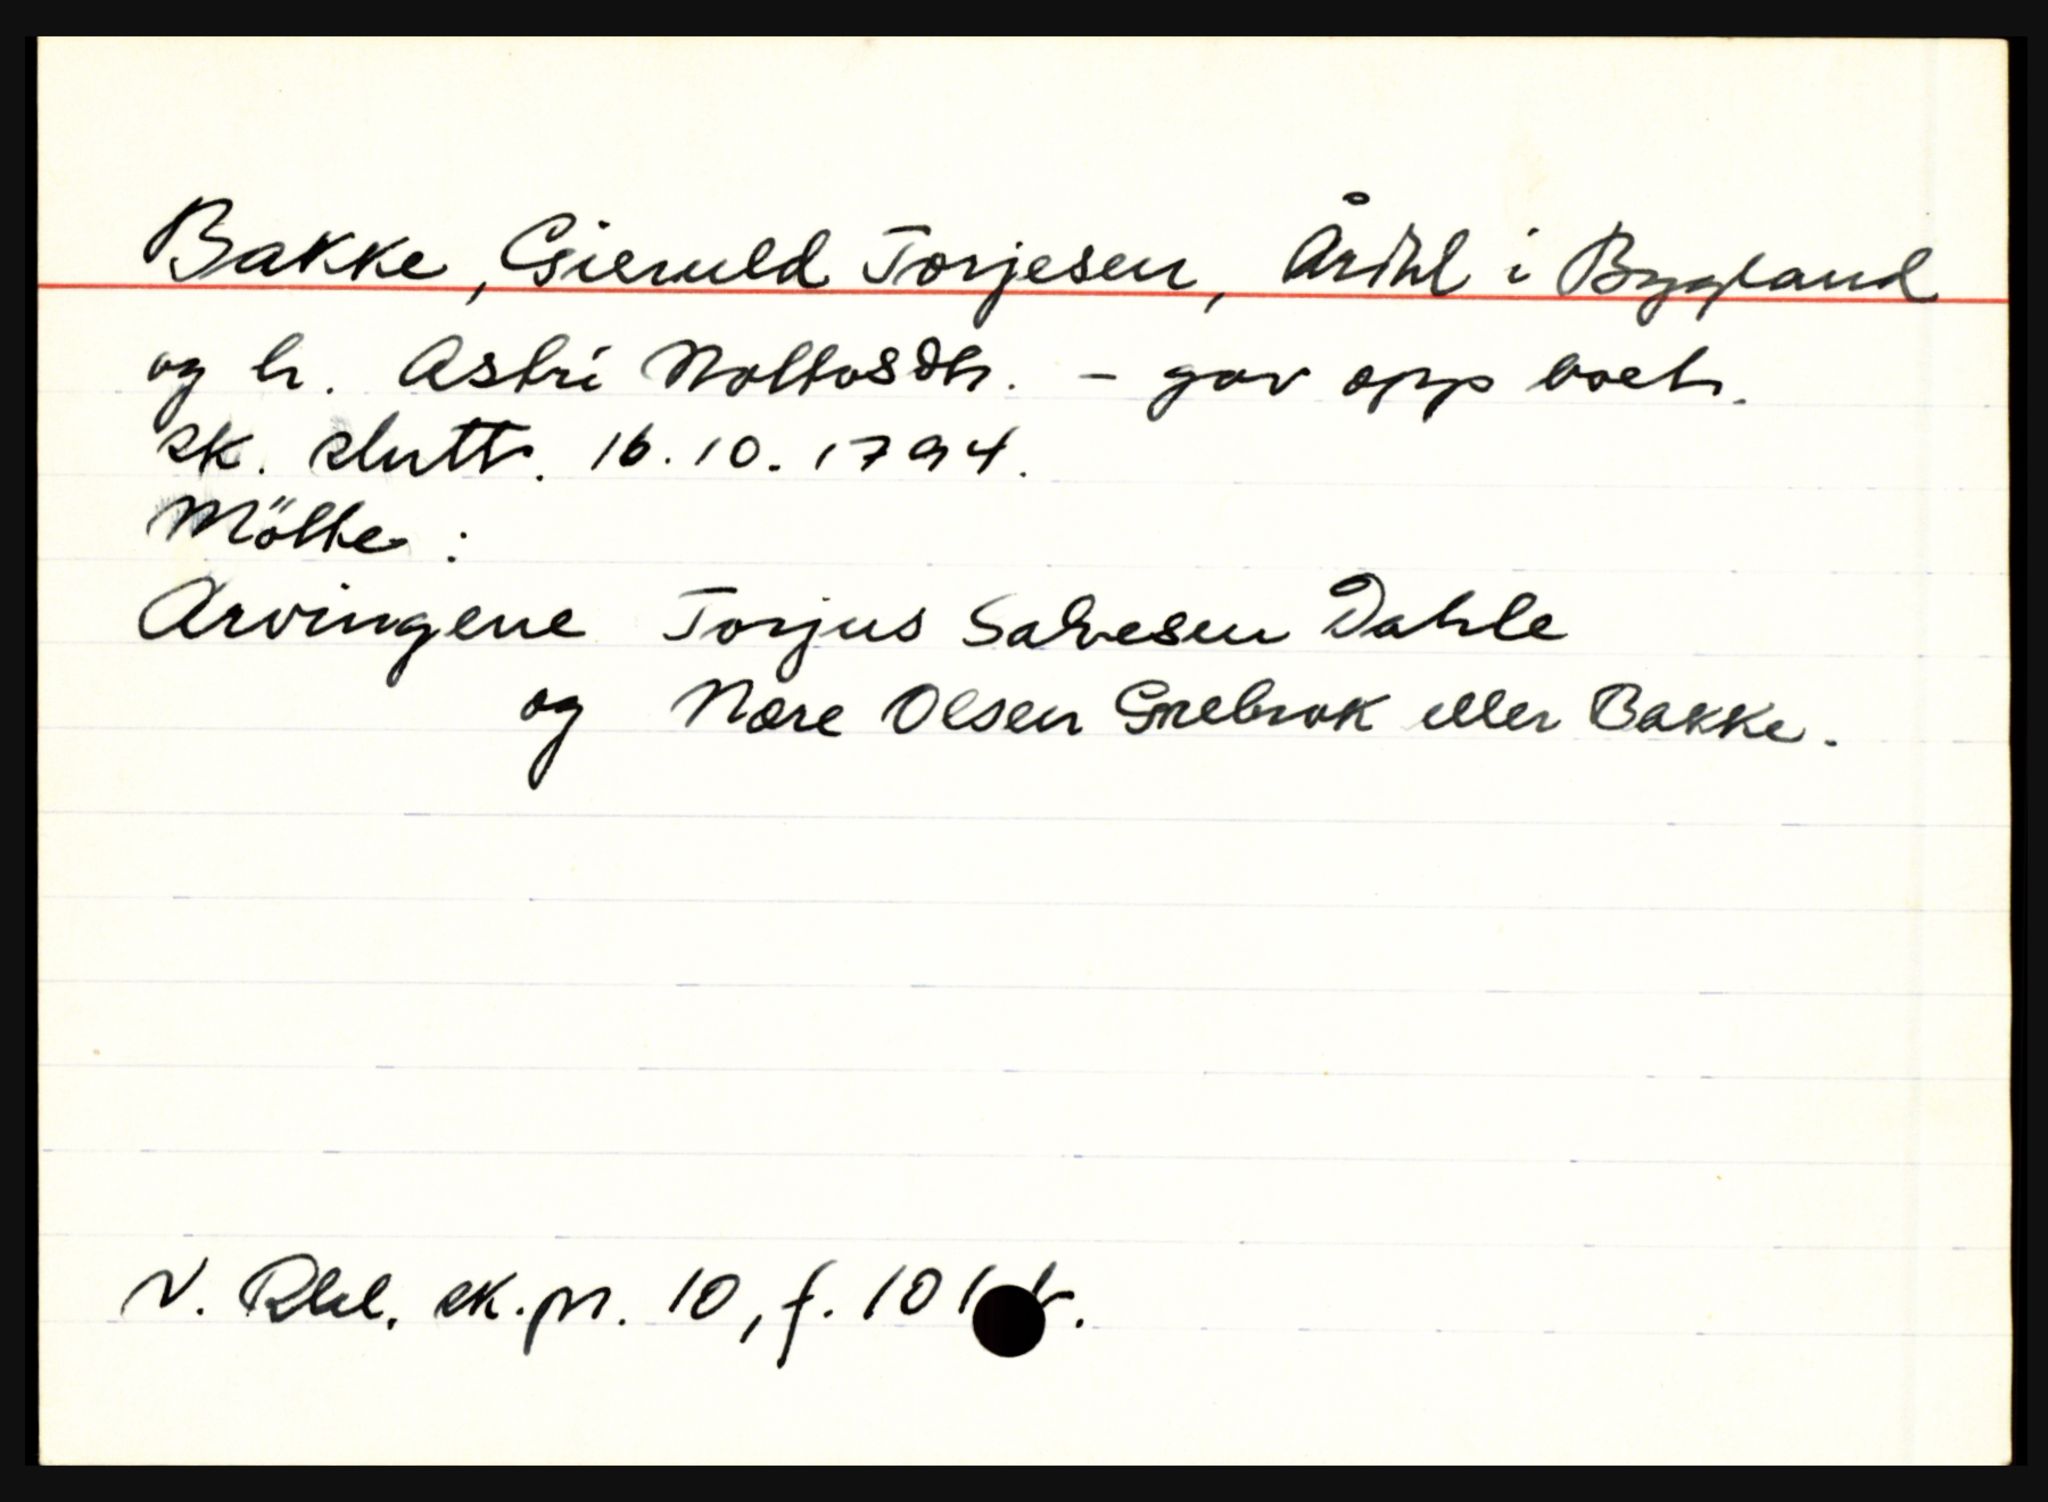 Bakke, Gieruld Torjesen, Årdal i Bygland
og h. Astri Noltosdtr. - gav opp boet.
sk. slutt. 16.10.1794.
Mötte:
Arvingene Torjus Salvesen Dahle
og Nore Olsen Grebrok eller Bakke.
N. Rbl. sk.pr. 10, f. 101 .